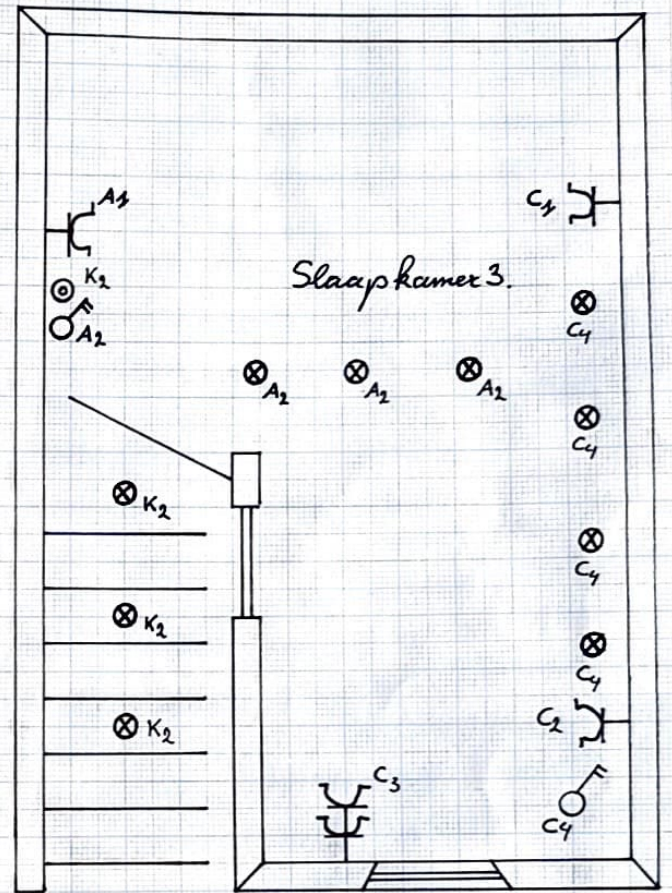 A1
C1
K2
Slaapkamer 3.
A2
C4
A2
A2
A2
C4
K2
C4
K2
C4
C2
K2
C3
C4